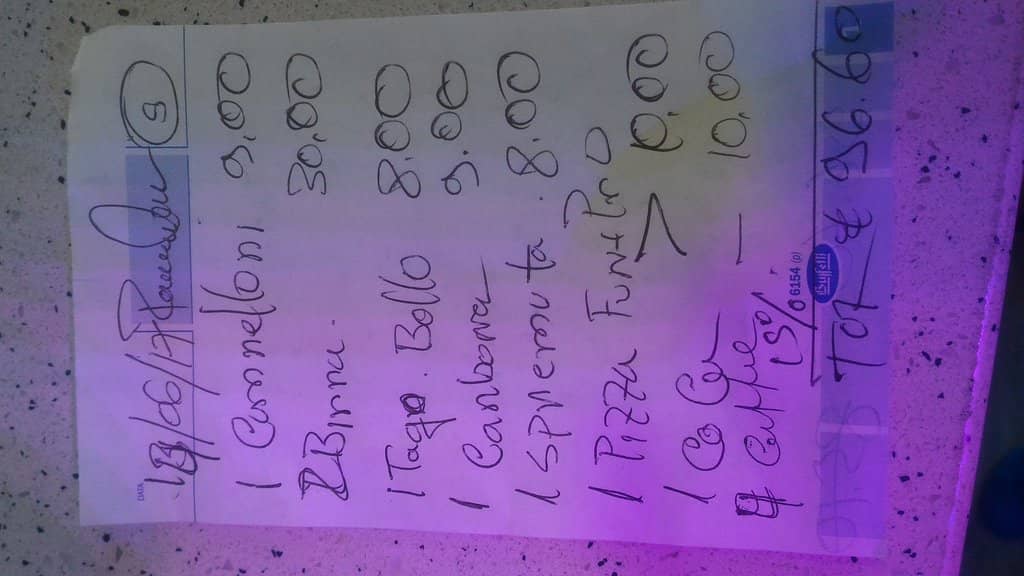 DATA
/06/17
1 Cannelloni 9.00
2 Birra 30.00
1 Tag. Bollo 8.00
1 Carbona 9.00
1 Spremuta 8.00
1 Pizza Funt Pr
1 Co Ca > 10.00
4 Caffe — 10.00
15%
6154 (D)
Buffetti
TOT € 96.60